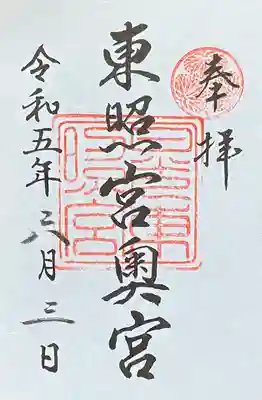 奉拝
東照宮奥宮
令和五年八月三日